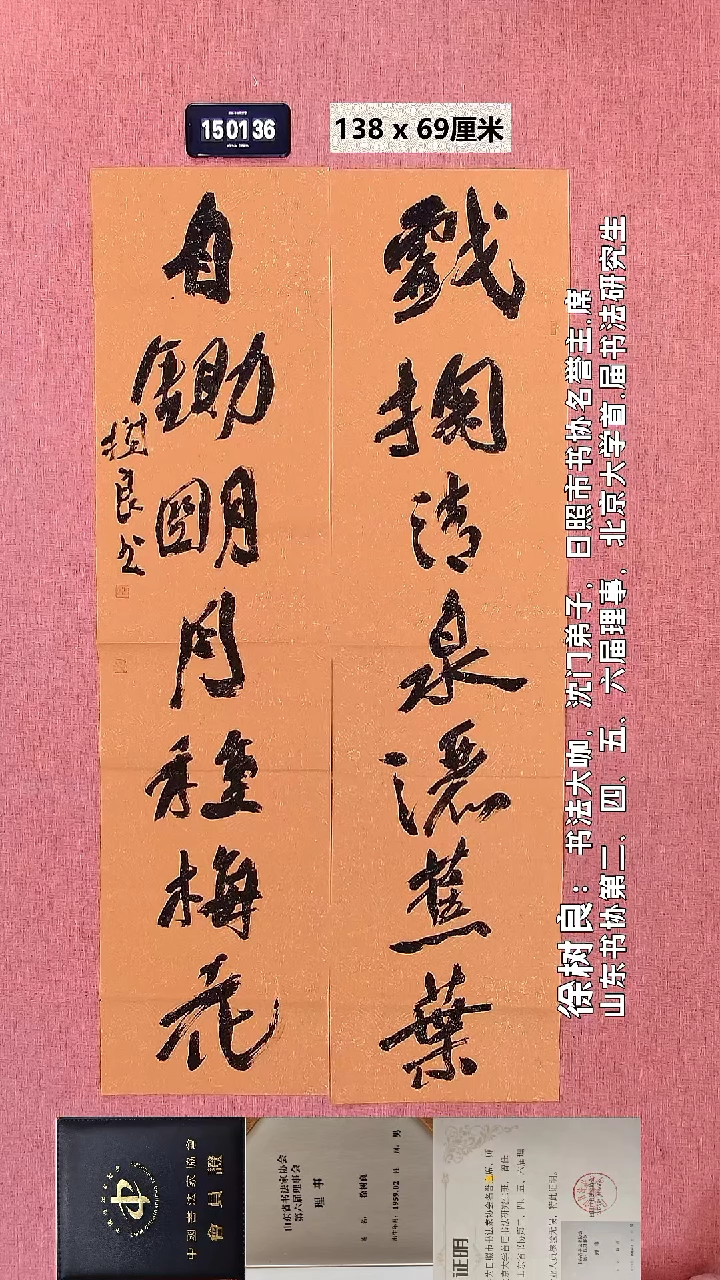 15 01 36
138 x 69厘米
戲掬清泉灑蕉葉
自鋤明月種梅花
樹良书
徐树良：书法大咖，沈门弟子，日照市书协名誉主.席
山东书协第二、四、五、六届理事，北京大学首.届书法研究生
中國書法家協會
會員證
山东省书法家协会
第六届理事会
理事
证明